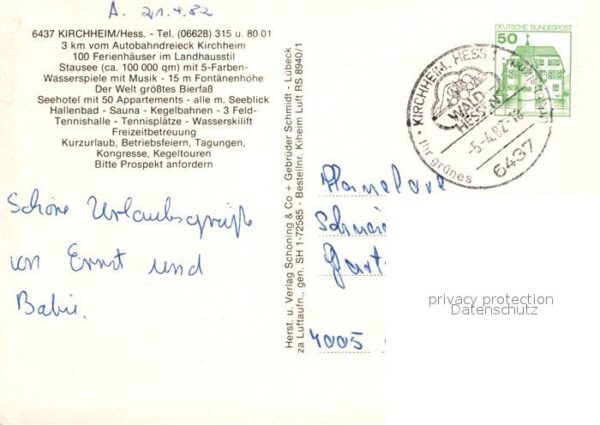 A. 21.4.82
6437 KIRCHHEIM/Hess. - Tel. (06628) 315 u. 80 01
3 km vom Autobahndreieck Kirchheim
100 Ferienhäuser im Landhausstil
Stausee (ca. 100 000 qm) mit 5-Farben-
Wasserspiele mit Musik - 15 m Fontänenhöhe
Der Welt größtes Bierfaß
Seehotel mit 50 Appartements - alle m. Seeblick
Hallenbad - Sauna - Kegelbahnen - 3 Feld-
Tennishalle - Tennisplätze - Wasserskilift
Freizeitbetreuung
Kurzurlaub, Betriebsfeiern, Tagungen,
Kongresse, Kegeltouren
Bitte Prospekt anfordern
Schöne Urlaubsgrüße
von Ernst und
Babsi.
Herst. u. Verlag Schöning & Co + Gebrüder Schmidt - Lübeck
za Luftaufn., gen. SH 1-72585 - Bestellnr. Kiheim Luft RS 8940/1
50
DEUTSCHE BUNDESPOST
KIRCHHEIM, HESS
WALD
HESSEN
-5.-4.82-18
Ihr grünes
6437
Hannelore
4005
privacy protection
Datenschutz